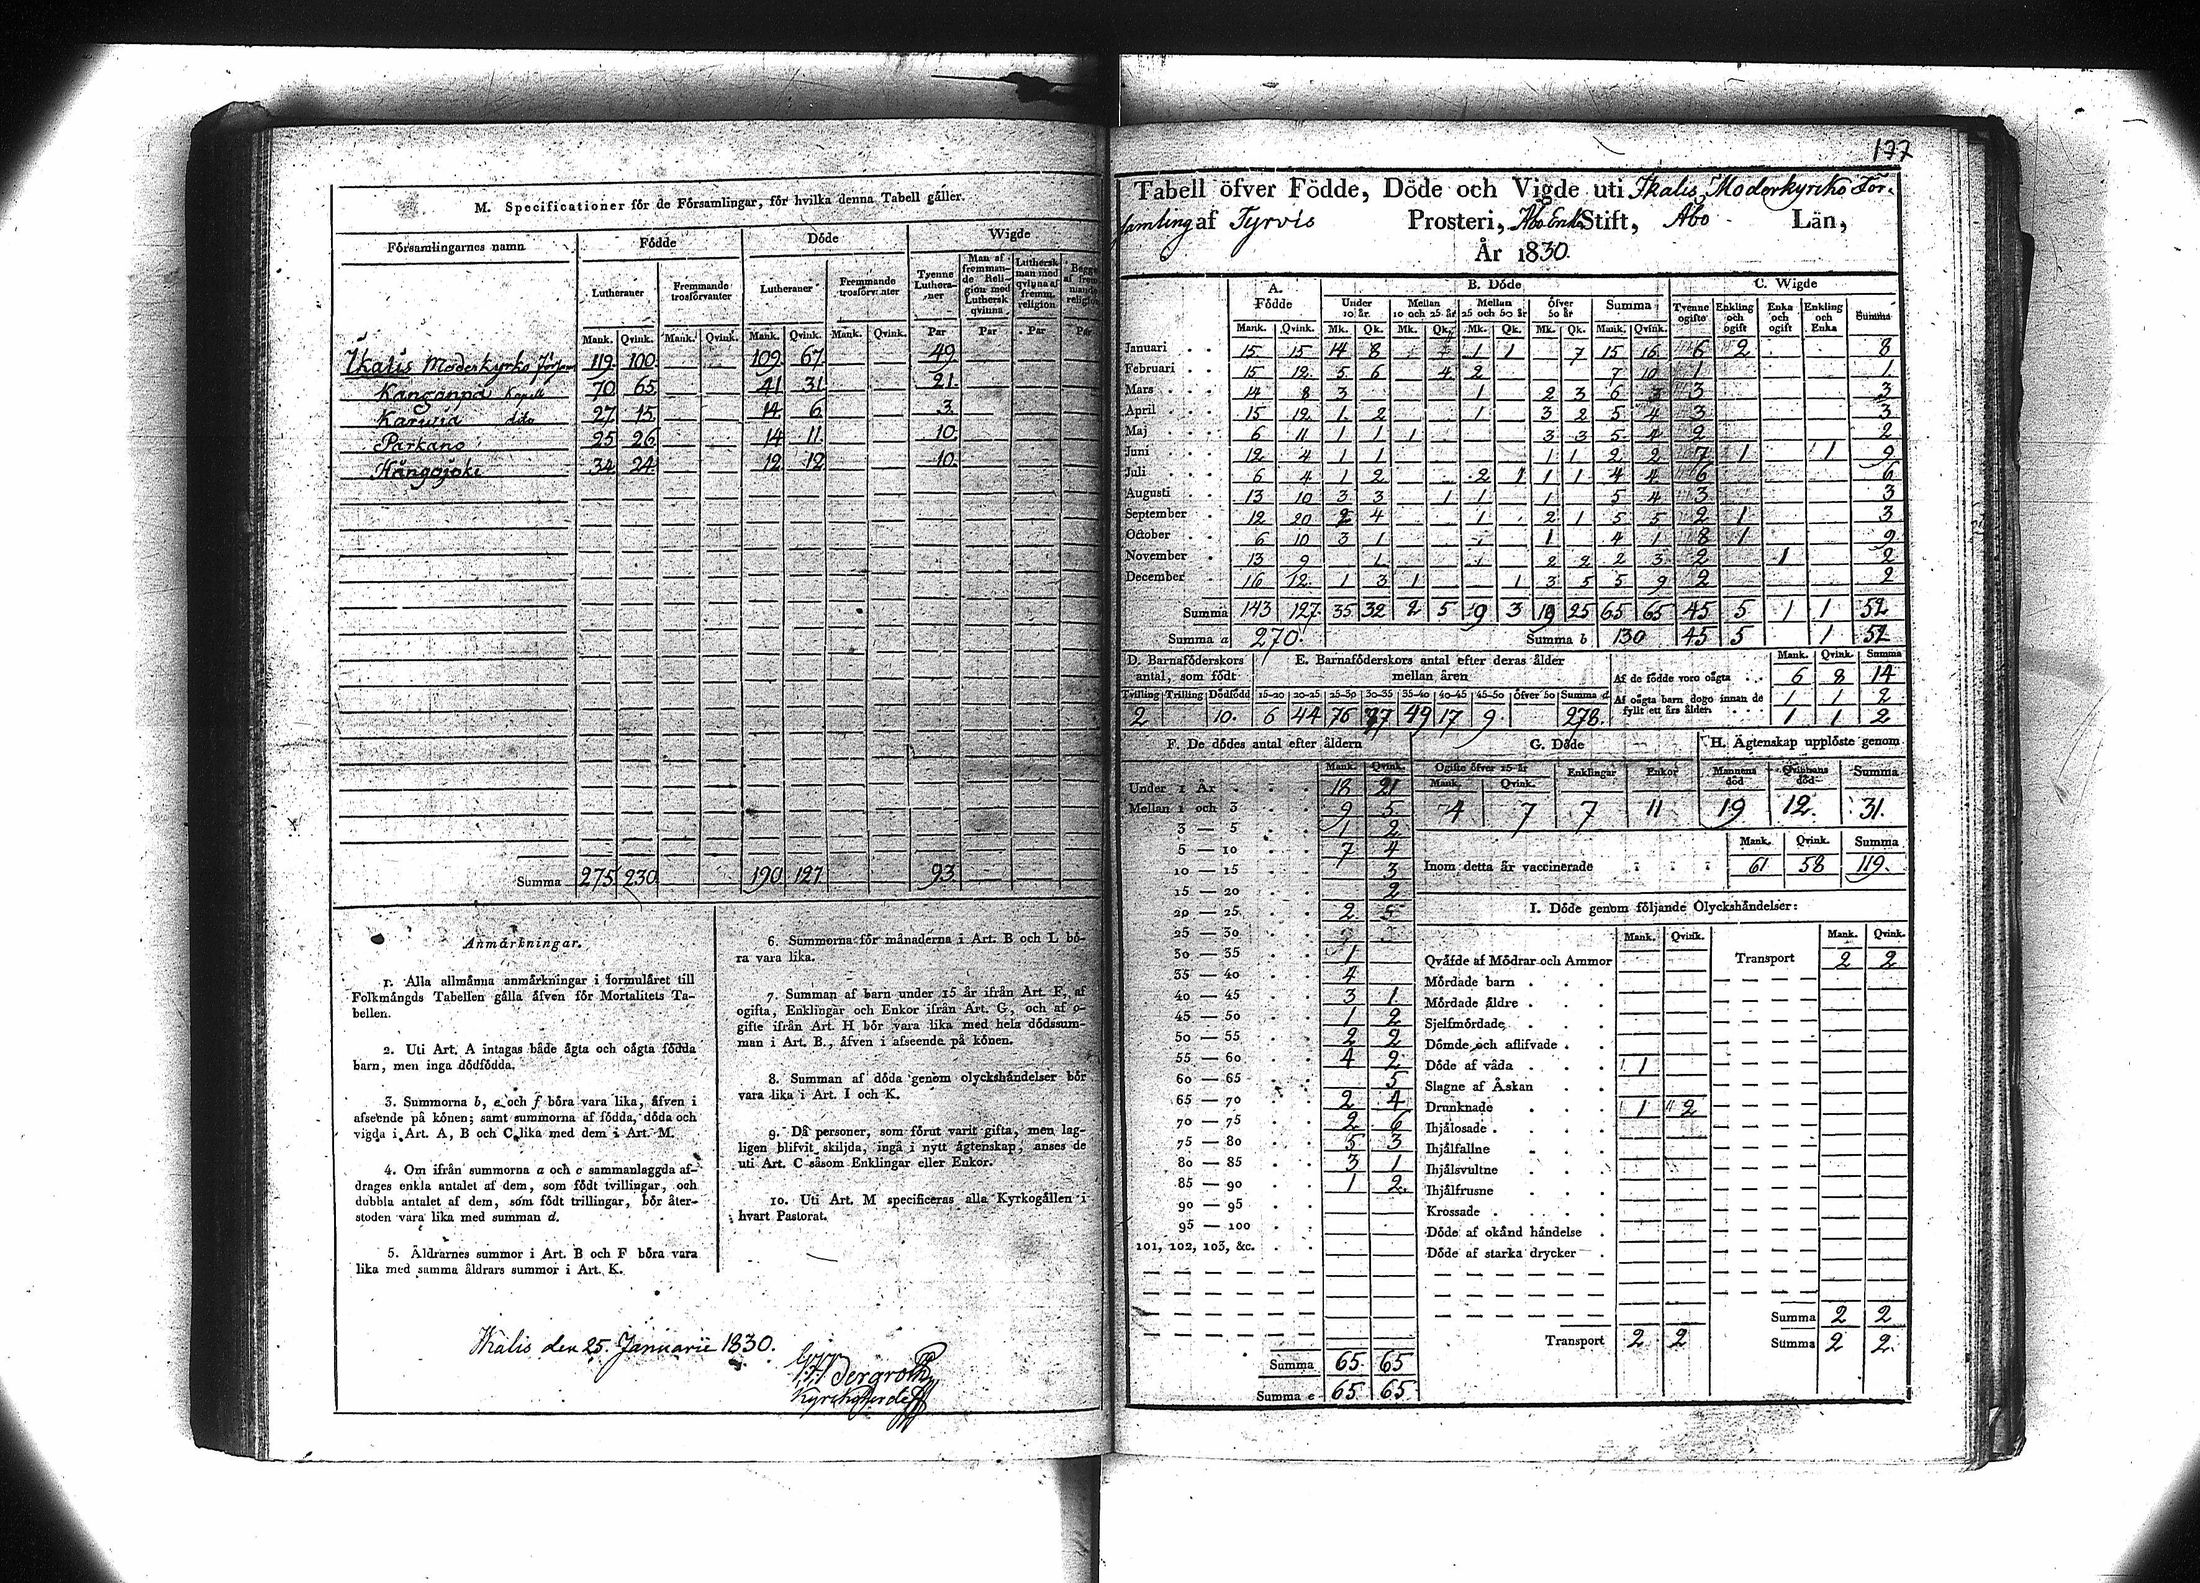 M. Specificationer för de Församlingar, för hvilka denna Tabell gäller.
Församlingarnes namn Födde Döde Wigde
Lutheraner Fremmande trosförvanter Lutheraner Fremmande trosförvanter Tvenne Lutheraner Man af fremmande Religion med Luthersk qvinna Luthersk man med qvinna af fremm. religion. Begge af fremmande religion
Mank. Qvink. Mank. Qvink. Mank. Qvink. Mank. Qvink. Par Par Par Par
Ikalis Moderkyrko 119 100 109 67 49
Kanganpä Kapell 70 65 41 31 21
Karvia dito 27 15 14 6 3
Parkano 25 26 14 11 10
Hångojoki 34 24 12 12 10
Summa 275 230 190 127 93
Anmärkningar.
1. Alla allmänna anmärkningar i formuläret till
Folkmängds Tabellen gälla äfven för Mortalitets Ta-
bellen.
2. Uti Art. A intagas både ägta och oägta födda
barn, men inga dödfödda.
3. Summorna b, e och f böra vara lika, äfven i
afseende på könen; samt summorna af födda, döda och
vigda i Art. A, B och C lika med dem i Art. M.
4. Om ifrån summorna a och c sammanlaggda af-
drages enkla antalet af dem, som födt tvillingar, och
dubbla antalet af dem, som födt trillingar, bör åter-
stoden vara lika med summan d.
5. Åldrarnes summor i Art. B och F böra vara
lika med samma åldrars summor i Art. K.
6. Summorna för månaderna i Art. B och L bö-
ra vara lika.
7. Summan af barn under 15 år ifrån Art. F, af
ogifta, Enklingar och Enkor ifrån Art. G, och af o-
gifte ifrån Art. H bör vara lika med hela dödssum-
man i Art. B., äfven i afseende på könen.
8. Summan af döda genom olyckshändelser bör
vara lika i Art. I och K.
9. Då personer, som förut varit gifta, men lag-
ligen blifvit skiljda, ingå i nytt ägtenskap, anses de
uti Art. C såsom Enklingar eller Enkor.
10. Uti Art. M specificeras alla Kyrkogällen i
hvart Pastorat.
Ikalis den 25. Januarii 1830.
177
Tabell öfver Födde, Döde och Vigde uti Ikalis Moderkyrko För-
samling af Tyrvis Prosteri, Åbo Stift, Åbo Län,
År 1830.
A. Födde B. Döde C. Wigde
Under 10 år. Mellan 10 och 25 år Mellan 25 och 50 år Öfver 50 år Summa Tvenne ogifte Enkling och ogift Enka och ogift Enkling och Enka Summa
Mank. Qvink. Mk. Qk. Mk. Qk. Mk. Qk. Mk. Qk. Mank. Qvink.
Januari 15 15 14 8 1 1 7 15 16 6 2 8
Februari 15 12 5 6 4 2 7 10 1 1
Mars 14 8 3 1 2 3 6 3 3 3
April 15 12 1 2 1 3 2 5 4 3 3
Maj 6 11 1 1 1 3 3 5 4 2 2
Juni 12 4 1 1 1 1 2 2 7 1 1 9
Juli 6 4 1 2 2 1 1 1 4 4 6 6
Augusti 13 10 3 3 1 1 1 5 4 3 3
September 12 20 2 4 1 2 1 5 5 2 1 3
October 6 10 3 1 1 4 1 8 1 9
November 13 9 1 2 2 2 3 2 1 2
December 16 12 1 3 1 1 3 5 5 9 2 2
Summa 143 127 35 32 2 5 9 3 19 25 65 65 45 5 1 1 52
Summa a 270 Summa b 130 45 5 1 52
D. Barnaföderskors antal, som födt E. Barnaföderskors antal efter deras ålder mellan åren Mank. Qvink. Summa
Af de födde voro oägta 6 8 14
Tvilling Trilling Dödfödd 15-20 20-25 25-30 30-35 35-40 40-45 45-50 Öfver 50 Summa d
Af oägta barn dogo innan de 1 1 2
fyllt ett års ålder 1 1 2
2 10. 6 44 76 77 49 17 9 278.
F. De dödes antal efter åldern G. Döde H. Ägtenskap upplöste genom
Mank. Qvink. Ogifte öfver 15 år Mank. Qvink. Enklingar Enkor Mannens död Qvinnans död Summa
Under 1 År 18 21
Mellan 1 och 3 9 5 4 7 7 11 19 12. 31.
3 — 5 1 2
5 — 10 7 4
Mank. Qvink. Summa
10 — 15 3 Inom detta år vaccinerade 61 58 119.
15 — 20 2
20 — 25 2 5 I. Döde genom följande Olyckshändelser:
25 — 30
Mank. Qvink. Mank. Qvink.
30 — 35 1 Qväfde af Mödrar och Ammor Transport 2 2
35 — 40 4 Mördade barn
40 — 45 3 1 Mördade äldre
45 — 50 1 2 Sjelfmördade
50 — 55 2 2 Dömde och aflifvade
55 — 60 4 2 Döde af våda 1
60 — 65 5 Slagne af Åskan
65 — 70 2 4 Drunknade 1 2
70 — 75 2 6 Ihjälosade
75 — 80 5 3 Ihjälfallne
80 — 85 3 1 Ihjälsvultne
85 — 90 1 2. Ihjälfrusne
90 — 95 Krossade
95 — 100 Döde af okänd händelse
101, 102, 103, &c. Döde af starka drycker
Summa 2 2
Transport 2 2 Summa 2 2.
Summa 65 65
Summa e 65 65